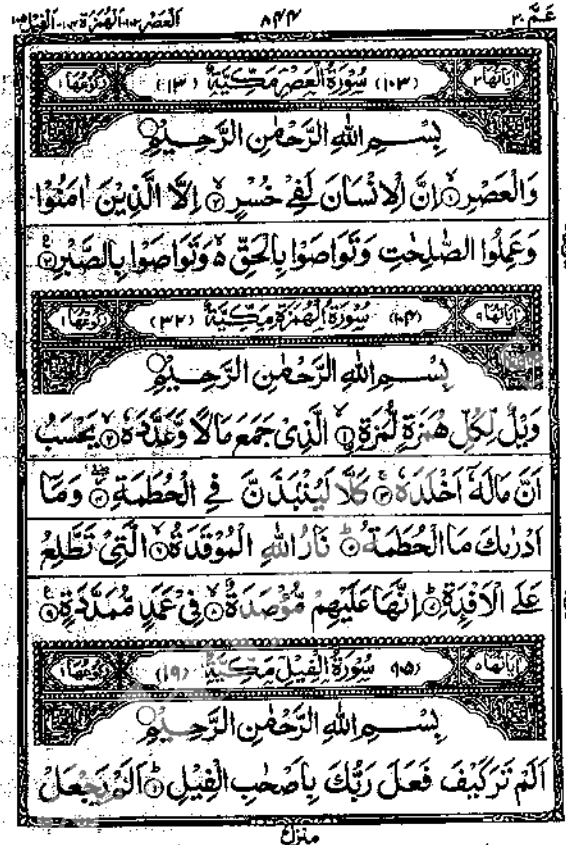 عَمَّ ٣٠ ٨٤٤ اَلْعَصْر ١٠٣ اَلْهُمَزَة ١٠٤ اَلْفِيْل ١٠٥
اٰيَاتُهَا ٣ (١٠٣) سُوْرَةُ الْعَصْرِ مَكِّيَّةٌ (١٣) رُكُوْعُهَا ١
بِسْمِ اللهِ الرَّحْمٰنِ الرَّحِيْمِ
وَالْعَصْرِ ۙ﴿١﴾ اِنَّ الْاِنْسَانَ لَفِيْ خُسْرٍ ۙ﴿٢﴾ اِلَّا الَّذِيْنَ اٰمَنُوْا
وَعَمِلُوا الصّٰلِحٰتِ وَتَوَاصَوْا بِالْحَقِّ ۙ۬ وَتَوَاصَوْا بِالصَّبْرِ ﴿٣﴾
اٰيَاتُهَا ٩ (١٠٤) سُوْرَةُ الْهُمَزَةِ مَكِّيَّةٌ (٣٢) رُكُوْعُهَا ١
بِسْمِ اللهِ الرَّحْمٰنِ الرَّحِيْمِ
وَيْلٌ لِّكُلِّ هُمَزَةٍ لُّمَزَةِ ۙ﴿١﴾ الَّذِيْ جَمَعَ مَالًا وَّعَدَّدَهٗ ۙ﴿٢﴾ يَحْسَبُ
اَنَّ مَالَهٗۤ اَخْلَدَهٗ ۚ﴿٣﴾ كَلَّا لَيُنْۢبَذَنَّ فِي الْحُطَمَةِ ۖ﴿٤﴾ وَمَاۤ
اَدْرٰىكَ مَا الْحُطَمَةُ ؕ﴿٥﴾ نَارُ اللهِ الْمُوْقَدَةُ ۙ﴿٦﴾ الَّتِيْ تَطَّلِعُ
عَلَى الْاَفْـِٕدَةِ ؕ﴿٧﴾ اِنَّهَا عَلَيْهِمْ مُّؤْصَدَةٌ ۙ﴿٨﴾ فِيْ عَمَدٍ مُّمَدَّدَةٍ ﴿٩﴾
اٰيَاتُهَا ٥ (١٠٥) سُوْرَةُ الْفِيْلِ مَكِّيَّةٌ (١٩) رُكُوْعُهَا ١
بِسْمِ اللهِ الرَّحْمٰنِ الرَّحِيْمِ
اَلَمْ تَرَ كَيْفَ فَعَلَ رَبُّكَ بِاَصْحٰبِ الْفِيْلِ ؕ﴿١﴾ اَلَمْ يَجْعَلْ
منزل